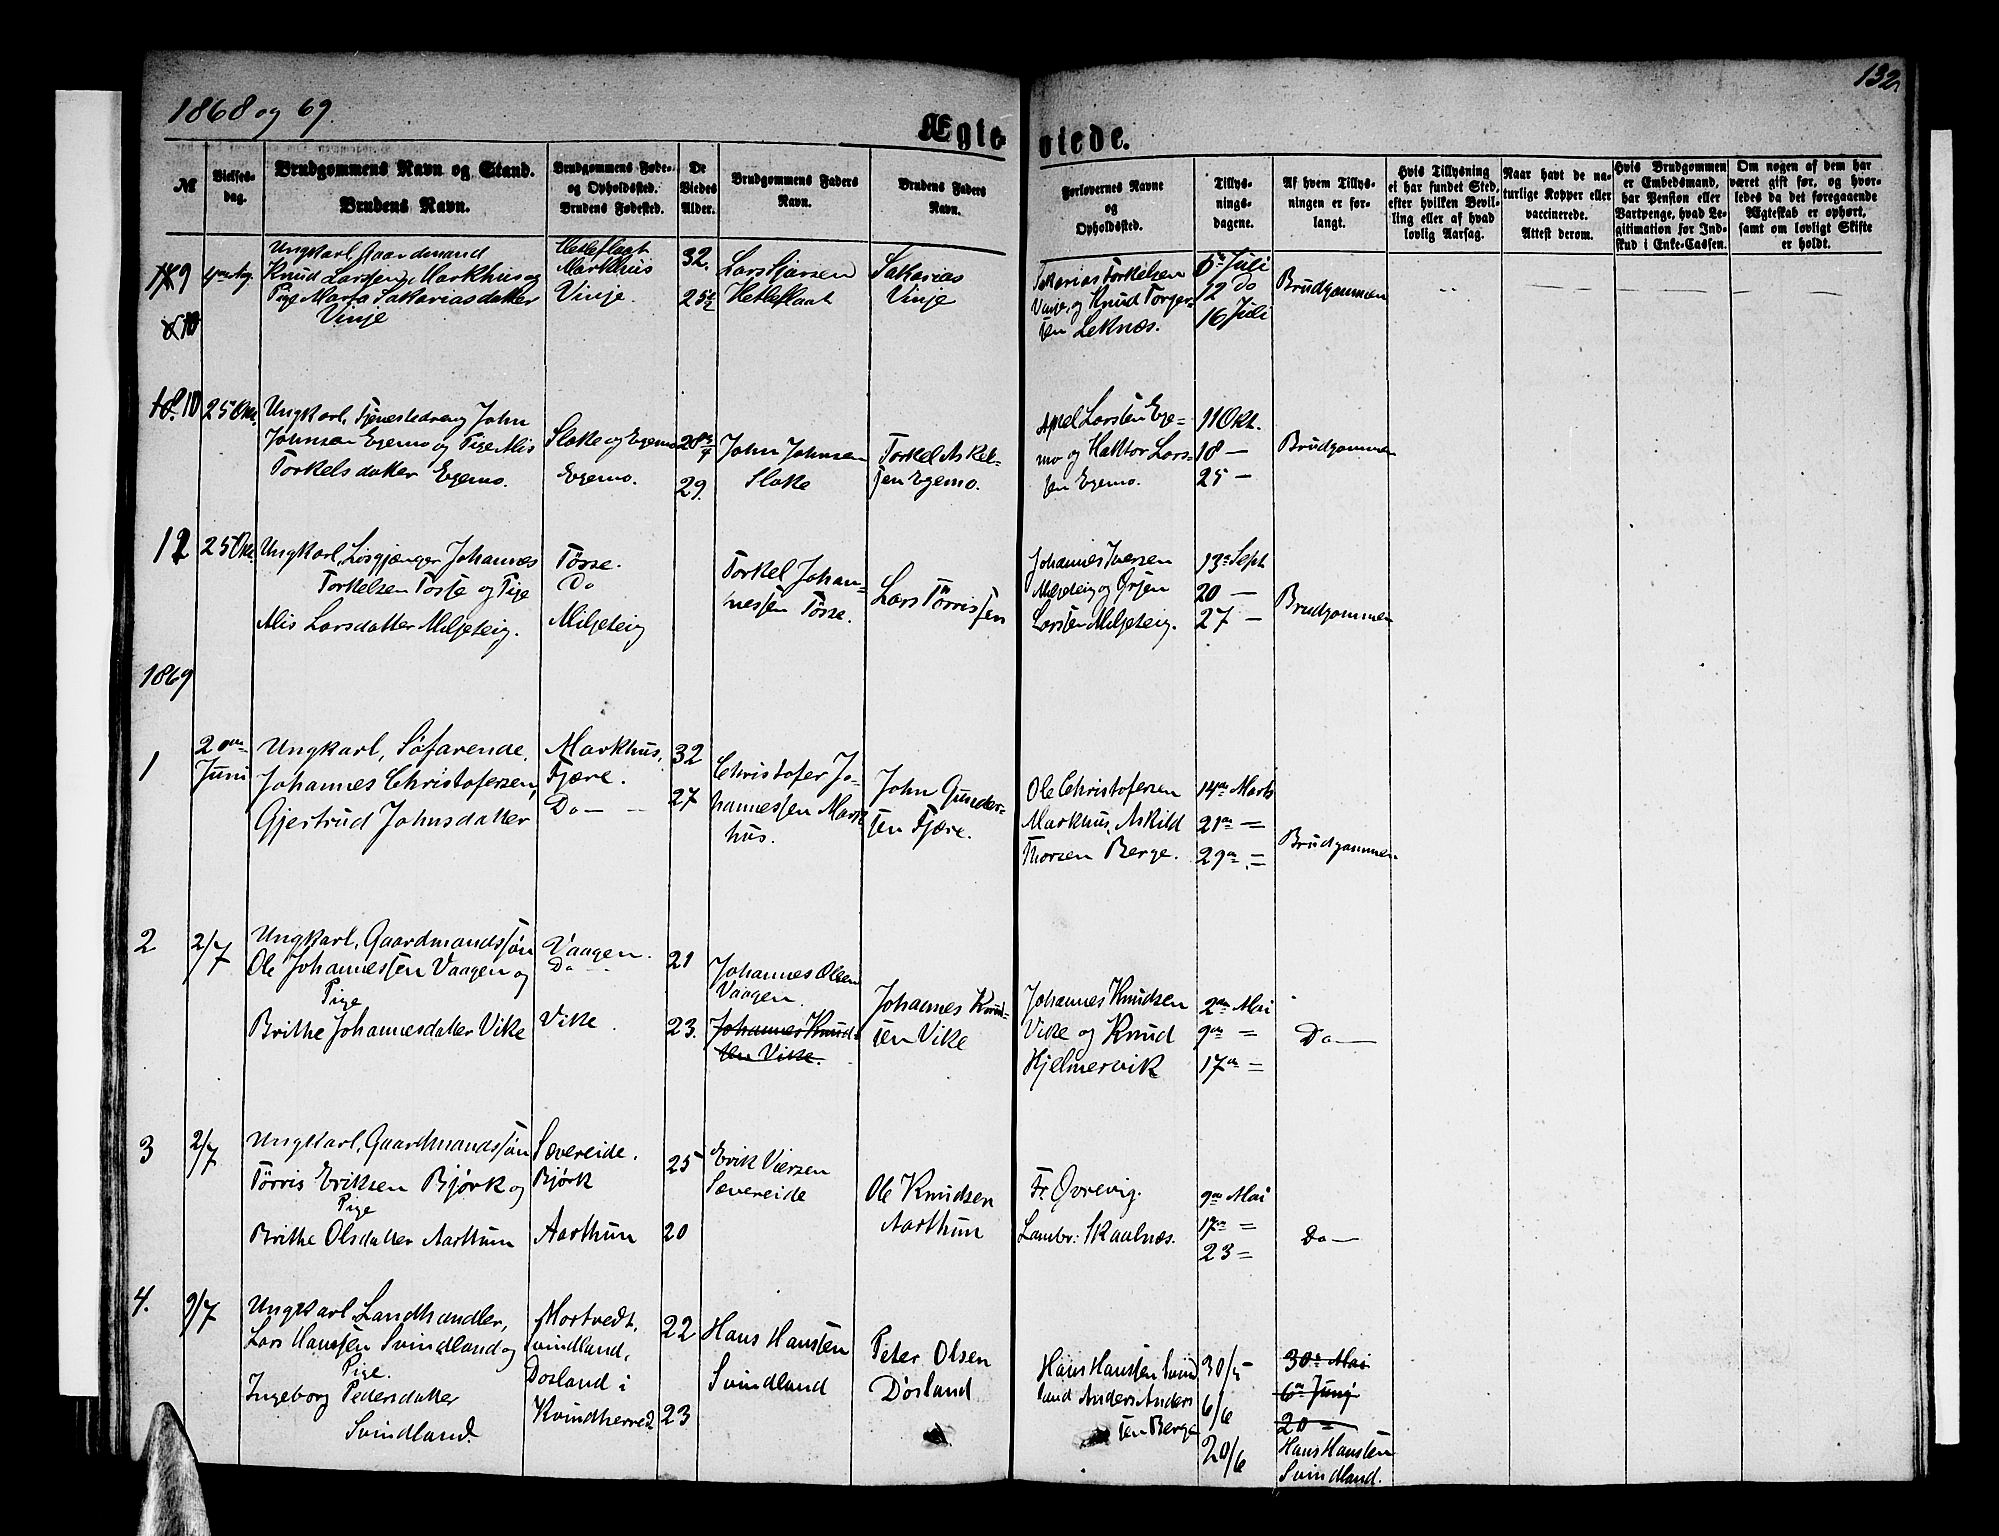 1868 og 69.
132
Ægteviede.
№
Vielses-
dag.
Brudgommens Navn og Stand.
Brudens Navn.
Brudgommens Føde-
og Opholdssted.
Brudens Fødested.
De
Viedes
Alder.
Brudgommens Faders
Navn.
Brudens Faders
Navn.
Forlovernes Navne
og
Opholdssted.
Tillys-
nings-
dagene.
Af hvem Tillys-
ningen er for-
langt.
Hvis Tillysning
ei har fundet Sted,
efter hvilken Bevil-
ling eller af hvad
lovlig Aarsag.
Naar havt de na-
turlige Kopper eller
vaccinerede.
Attest derom.
Hvis Brudgommen
er Embedsmand,
har Pension eller
Vartpenge, hvad Le-
gitimation for Ind-
skud i Enke-Cassen.
Om nogen af dem har
været gift før, og hvor-
ledes da det foregaaende
Ægteskab er ophørt,
samt om lovligt Skifte
er holdt.
9
Ungkarl Gaardmand
Knud Larsen Markhus og
Pige Marta Sakariasdatter
Vinje
Hetleflaat
Markhus
Vinje.
32.
25½
Lars
Hetleflaat
Sakarias
Vinje
Sakarias Torkelsen
Vinje, og Knud Torger-
sen Leknæs.
5te Juli
12 Do
16 Juli
Brudgommen
10
10
25 Okt.
Ungkarl, Tjenestedreng John
Johnsen Egemo og Pige Alis
Torkelsdatter Egemo.
Flate og Egemo
Egemo.
28¾
29.
John Johnsen
Flate
Torkel Askel-
sen Egemo.
Axel Larssen Ege-
mo og Haktor Lars-
sen Egemo.
11 Okt.
18 —
25 —
Brudgommen
11
25 Okt.
Ungkarl, Løsgjænger Johannes
Torkelsen Tosse og Pige
Alis Larsdatter Miljeteig.
Tøsse.
Do
Miljeteig
Torkel Johan-
nessen Tøsse.
Lars Tørrissen
Johannes Iversen
Miljeteig og Ørjen
Larssen Miljeteig.
13de Sept
20 —
27 —
Brudgommen
1869
1
20de
Juni
Ungkarl, Søfarende.
Johannes Christofersen,
Gjertrud Johnsdatter
Markhus,
Fjære.
Do — —
32
27
Christofer Jo-
hannessen Mark-
hus.
John Gunder-
sen Fjære.
Ole Christofersen
Markhus, Askild
Thorsen Berge.
14de Marts
21de =
29de =
Brudgommen
2
2/7
Ungkarl, Gaardmandssøn
Ole Johannessen Vaagen og
Pige
Brithe Johannesdatter Vike
Vaagen.
Do
Vike
21
23.
Johannes Olsen
Vaagen.
Johannes Knud-
sen Vike.
Johannes Knud-
sen Vike
Johannes Knudsen
Vike og Knud
Hjelmervik
2den Mai
9de =
17de =
Do —
3
2/7
Ungkarl, Gaardmandssøn
Tørris Eriksen Bjørk og
Pige
Brithe Olsdatter Aarthun
Sævereide.
Bjørk
Aarthun
25
20
Erik Viersen
Sævereide
Ole Knudsen
Aarthun
Fr. Øvrevig.
Lambr: Skaalnæs.
9de Mai
17de =
23 =
Do —
4.
9/7
Ungkarl, Landhandler,
Lars Hanssen Svindland og
Pige.
Ingeborg Pedersdatter
Svindland.
Mortvedt,
Svindland,
Dosland i
Kvindherred
22
23
Hans Hanssen
Svindland
Peter Olsen
Dosland
Hans Hanssen Svind
land Anders Anders
sen Berge
30/5
6/6
20/6
30te Mai
6te Juni
20 =
Hans Hanssen
Svindland.